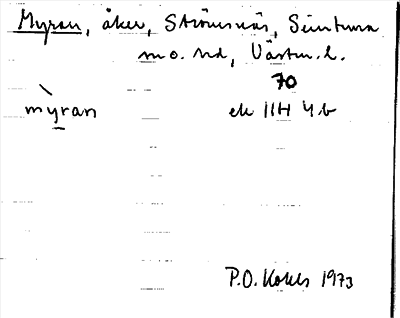 Myran, åker, Strömsnäs, Simtuna
sn o. hd, Västm. l.
70
mỳran ek 11H 4b
P.O. Kohls 1973